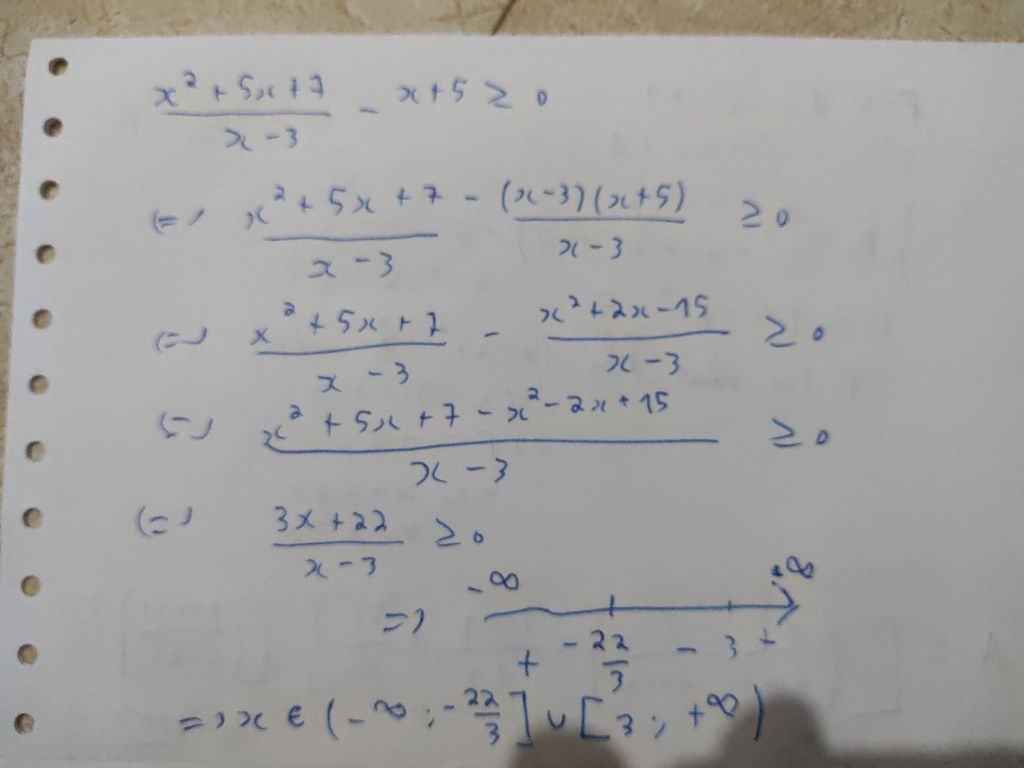 x² + 5x + 7 / x - 3 - x + 5 ≥ 0
(=) x² + 5x + 7 / x - 3 - (x - 3)(x + 5) / x - 3 ≥ 0
(=) x² + 5x + 7 / x - 3 - x² + 2x - 15 / x - 3 ≥ 0
(=) x² + 5x + 7 - x² - 2x + 15 / x - 3 ≥ 0
(=) 3x + 22 / x - 3 ≥ 0
=) -∞ +∞
+ -22/3 - 3 +
=) x ∈ (-∞ ; -22/3] ∪ [3 ; +∞)